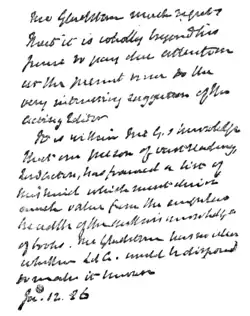 Mr Gladstone much regrets
that it is wholly beyond his
power to pay due attention
at the present time to the
very interesting suggestion of the
Acting Editor
It is within Mr G.'s knowledge
that one person of vast reading,
Ld Acton, has framed a list of
this kind which must derive
much value from the
breadth of the author's knowledge
of books. Mr Gladstone has no idea
whether Ld A. would be disposed
to make it known
Ja. 12. 86